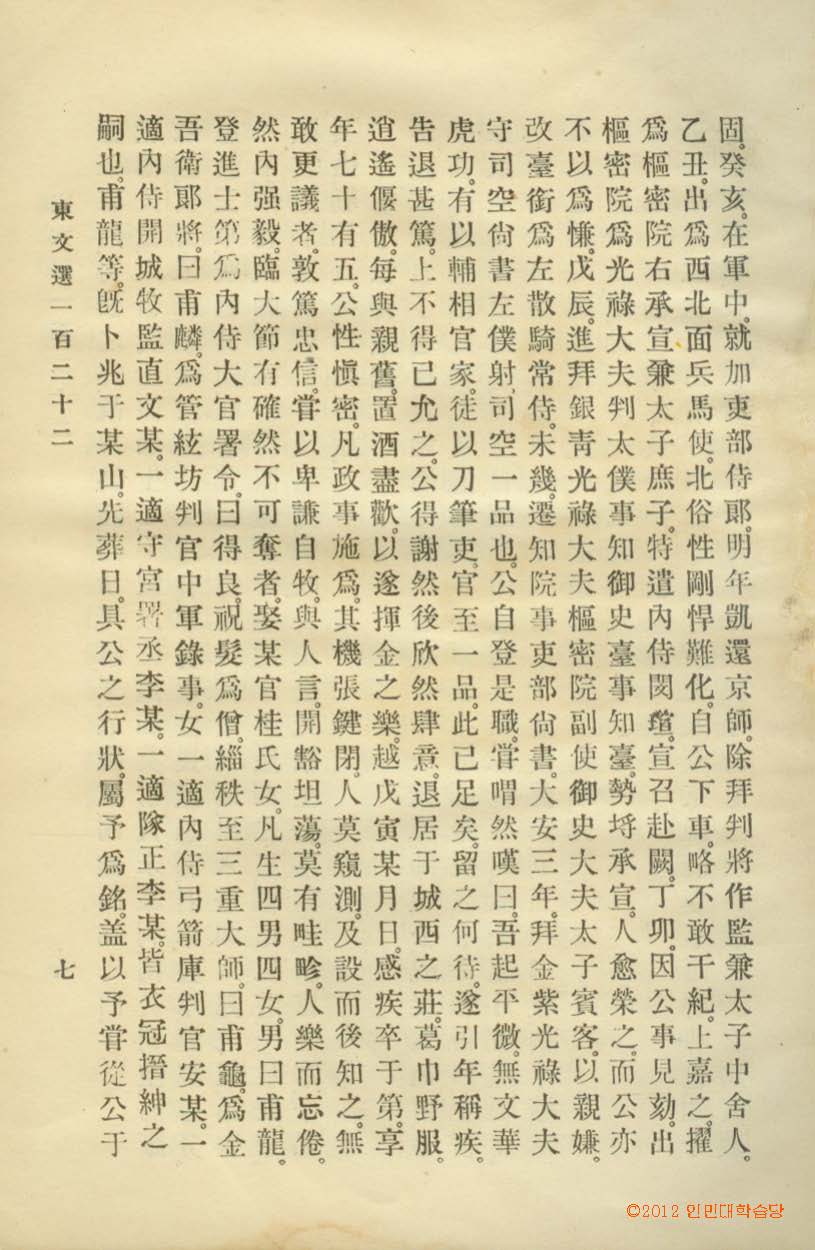 固。癸亥。在軍中。就加吏部侍郞。明年凱還京師。除拜判將作監兼太子中舍人。
乙丑。出爲西北面兵馬使。北俗性剛悍難化。自公下車。略不敢干紀。上嘉之。擢
爲樞密院右承宣兼太子庶子。特遣內侍閔瑄。宣召赴闕。丁卯。因公事見劾。出
樞密院爲光祿大夫判太僕事知御史臺事知臺。勢埒承宣。人愈榮之。而公亦
不以爲慊。戊辰。進拜銀靑光祿大夫樞密院副使御史大夫太子賓客。以親嫌。
改臺銜爲左散騎常侍。未幾。遷知院事吏部尙書。大安三年。拜金紫光祿大夫
守司空尙書左僕射。司空一品也。公自登是職。甞喟然嘆曰。吾起平微。無文華
虎功。有以輔相官家。徒以刀筆吏。官至一品。此已足矣。留之何待。遂引年稱疾。
告退甚篤。上不得已允之。公得謝然後欣然肆意。退居于城西之莊。葛巾野服。
逍遙偃傲。每與親舊。置酒盡歡。以遂揮金之樂。越戊寅某月日。感疾卒于第。享
年七十有五。公性愼密。凡政事施爲。其機張鍵閉。人莫窺測。及設而後知之。無
敢更議者。敦篤忠信。甞以卑謙自牧。與人言。開豁坦蕩。莫有畦畛。人樂而忘倦。
然內强毅。臨大節有確然不可奪者。娶某官桂氏女。凡生四男四女。男曰甫龍。
登進士第。爲內侍大官署令。曰得良。祝髮爲僧。緇秩至三重大師。曰甫龜。爲金
吾衛郞將。曰甫麟。爲管絃坊判官中軍錄事。女一適內侍弓箭庫判官安某。一
適內侍開城牧監直文某。一適守宮署丞李某。一適隊正李某。皆衣冠搢紳之
嗣也。甫龍等。旣卜兆于某山。先葬日。具公之行狀。屬予爲銘。盖以予甞從公于
東文選一百二十二 七
©2012 인민대학습당